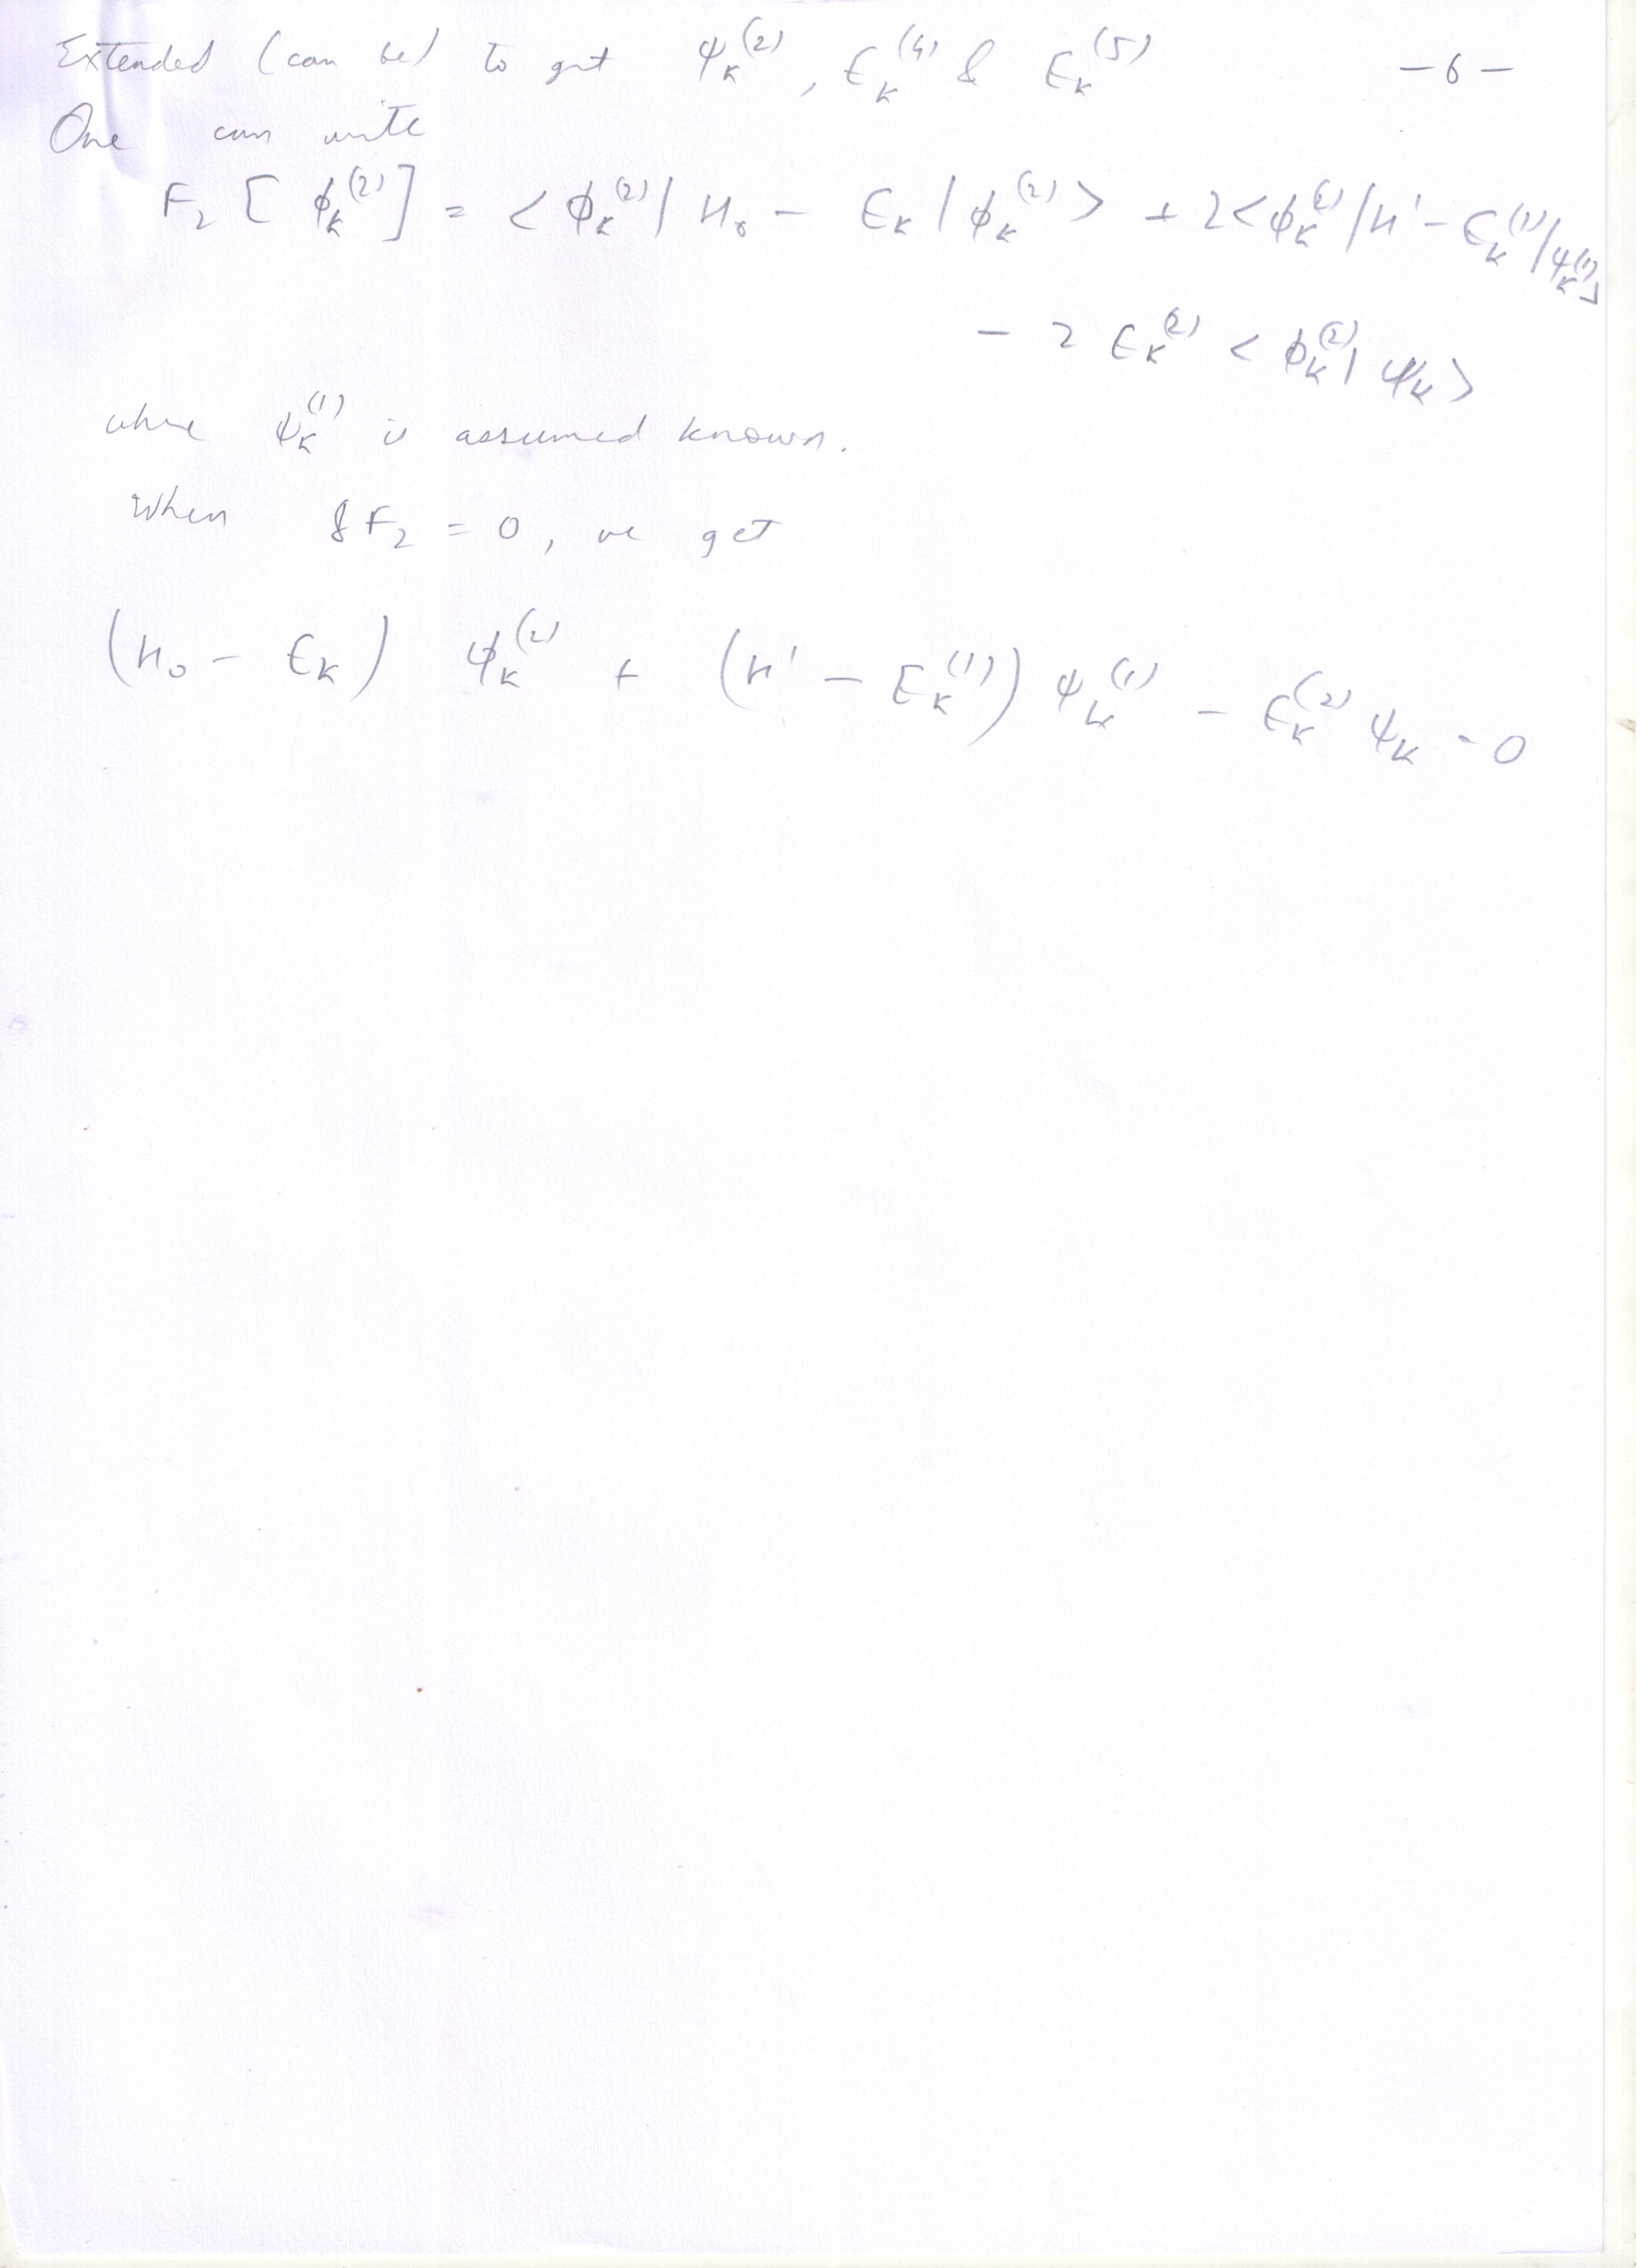 Extended (can be) to get ψ_K^(2), E_K^(4) & E_K^(5) -6-
One can write
F_2 [ϕ_K^(2)] = <ϕ_K^(2)| H_0 - E_K |ϕ_K^(2)> + 2<ϕ_K^(2)|H' - E_K^(1)|ψ_K^(1)>
- 2 E_K^(2) <ϕ_K^(2)| ψ_K>
where ψ_K^(1) is assumed known.
When δF_2 = 0, we get
(H_0 - E_K) ψ_K^(2) + (H' - E_K^(1)) ψ_K^(1) - E_K^(2) ψ_K = 0